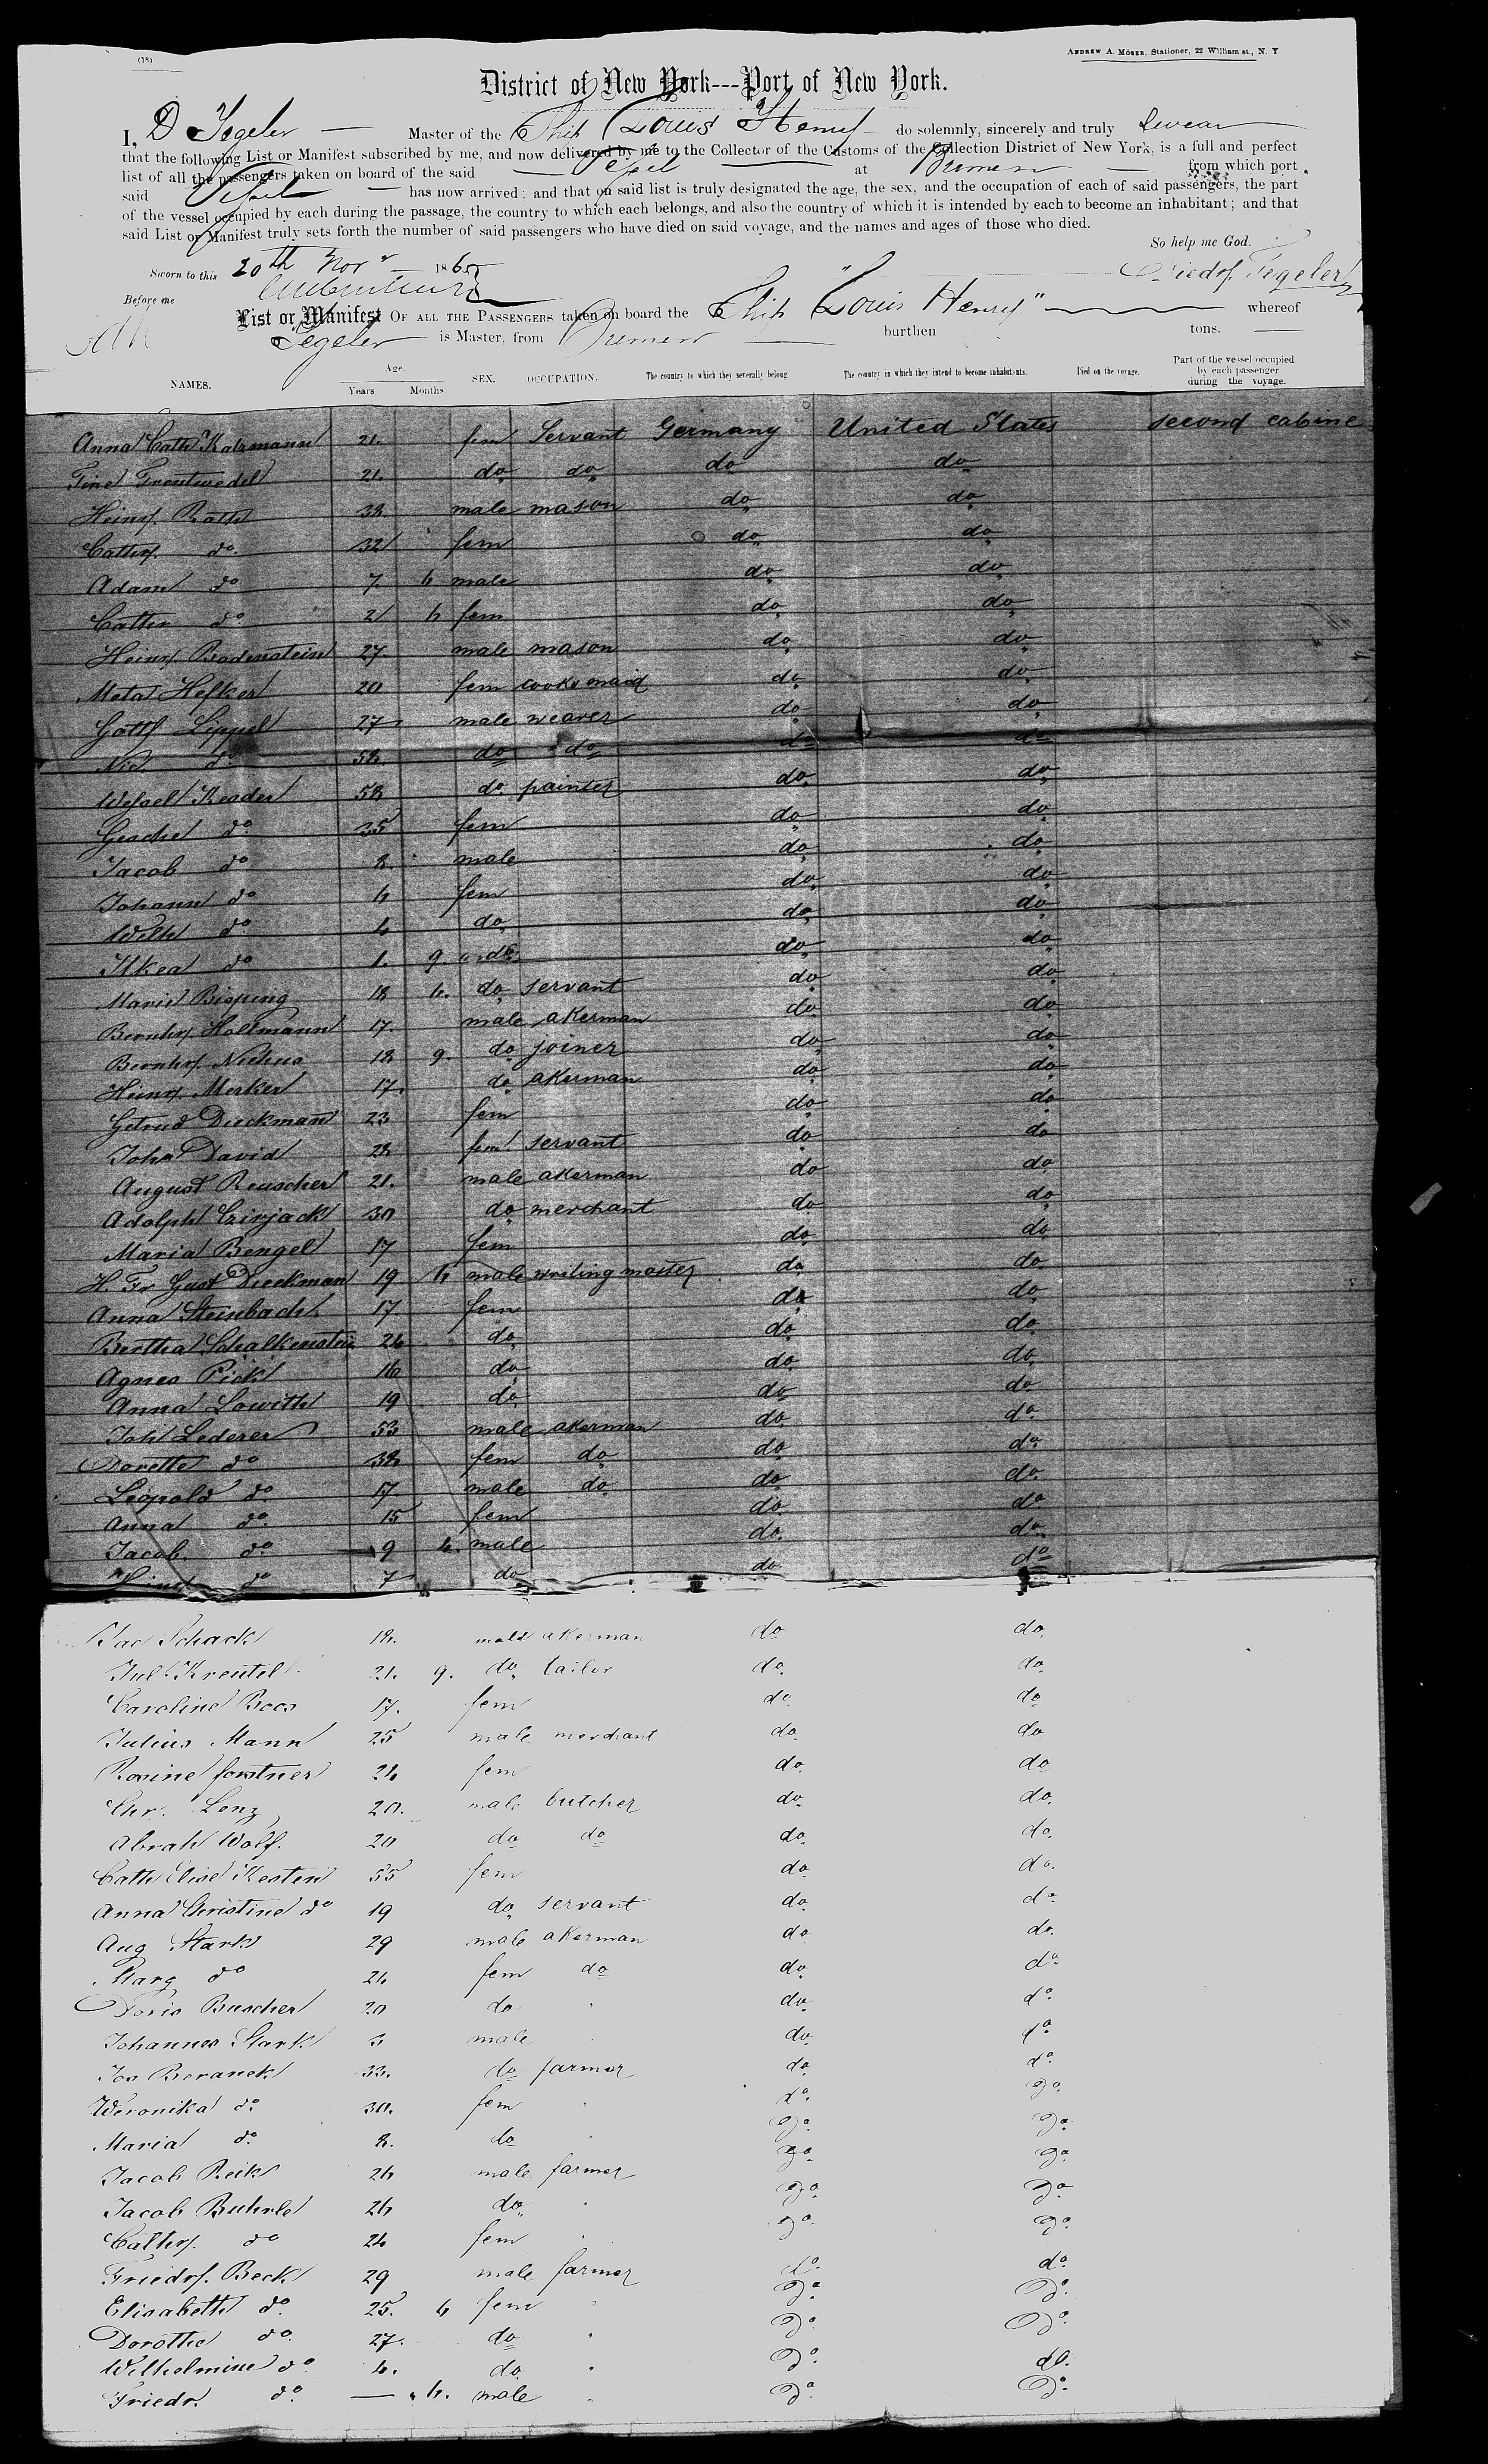 (18)
ANDREW A. MÖSER, Stationer, 22 William st., N. Y
District of New York---Port of New York.
I, D Tegeler — Master of the Ship Louis Henry do solemnly, sincerely and truly swear
that the following List or Manifest subscribed by me, and now delivered by me to the Collector of the Customs of the Collection District of New York, is a full and perfect
list of all the passengers taken on board of the said — Vessel at Bremen — from which port
said Vessel — has now arrived; and that on said list is truly designated the age, the sex, and the occupation of each of said passengers, the part
of the vessel occupied by each during the passage, the country to which each belongs, and also the country of which it is intended by each to become an inhabitant; and that
said List or Manifest truly sets forth the number of said passengers who have died on said voyage, and the names and ages of those who died.
So help me God.
Sworn to this 20th Novr 1865
Diedr. Tegeler
Before me
List or Manifest OF ALL THE PASSENGERS taken on board the Ship "Louis Henry" whereof
Tegeler is Master, from Bremen burthen tons.
NAMES. Age. Years Months SEX. OCCUPATION. The country to which they severally belong. The country in which they intend to become inhabitants. Died on the voyage. Part of the vessel occupied by each passenger during the voyage.
Anna Cath Katzmann 21. fem Servant Germany United States second cabine
Fine Trentwedel 21. do do do do
Heinr. Rath 38. male mason do do
Cathr. do 32 fem do do
Adam do 7. 6 male do do
Cathr do 2 6 fem do do
Heinr. Bodenstein 27. male mason do do
Meta Hefker 20 fem cooks maid do do
Gottf Lippel 27 male weaver do do
Nic. do 58 do do do do
Wessel Reader 58 do painter do do
Gesche do 35 fem do do
Jacob do 8. male do do
Johann do 6 fem do do
Wilh do 4 do do do
Ilkea do 1. 9. do do do
Marie Bisping 18 6. do servant do do
Bernhr. Holtmann 17. male akerman do do
Bernhr. Niehus 18 9. do joiner do do
Heinr. Merker 17. do akerman do do
Getrud Dieckmann 23 fem do do
Joha David 28 fem servant do do
August Reuscher 21. male akerman do do
Adolph Czirjack 30 do merchant do do
Maria Bengel 17 fem do do
H. Fr Gust Dieckman 19 6 male writing master do do
Anna Steinbach 17. fem do do
Bertha Schalkenstein 24 do do do
Agnes Pick 16 do do do
Anna Lowith 19 do do do
Joh Lederer 53 male akerman do do
Dorette do 38 fem do do do
Leopold do 17 male do do do
Anna do 15 fem do do
Jacob. do 9 6. male do do
do 7 do do do
Jac Schack 18. male akerman do do
Jul Kreutel 21. 9. do tailor do do
Caroline Boos 17. fem do do
Julius Mann 25 male merchant do do
Rosine forstner 24 fem do do
Chr. Lenz 20. male butcher do do
Abrah Wolf. 20 do do do do
Cath Elise Kesten 55 fem do do
Anna Christine do 19 do servant do do
Aug Stark 29 male akerman do do
Marg do 24 fem do do do
Doris Buscher 20 do " do do
Johannes Stark 3 male " do do
Jos Beranek 33. do farmer do do
Weronika do 30. fem " do do
Maria do 8. do " do do
Jacob Reik 26 male farmer do do
Jacob Buhrle 26 do " do do
Cathr. do 24 fem " do do
Friedr. Beck 29 male farmer do do
Elisabeth do 25. 6 fem " do do
Dorothe do 27. do " do do
Wilhelmine do 4. do " do do
Friedr. do — 6. male " do do